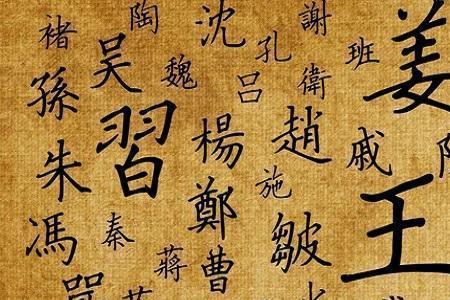 褚
陶
沈
孔
謝
班
姜
吴
魏
吕
衛
孫
習
楊
趙
戚
朱
施
鄭
王
馮
秦
皺
蔣
曹